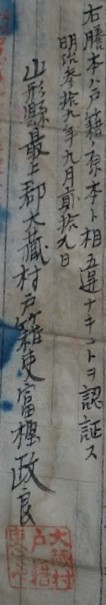 右謄本ハ戸籍ノ原本ト相違ナキコトヲ認証ス
明治参拾九年九月貳拾九日
山形縣最上郡大蔵村戸籍吏富樫政良
大蔵村
戸籍